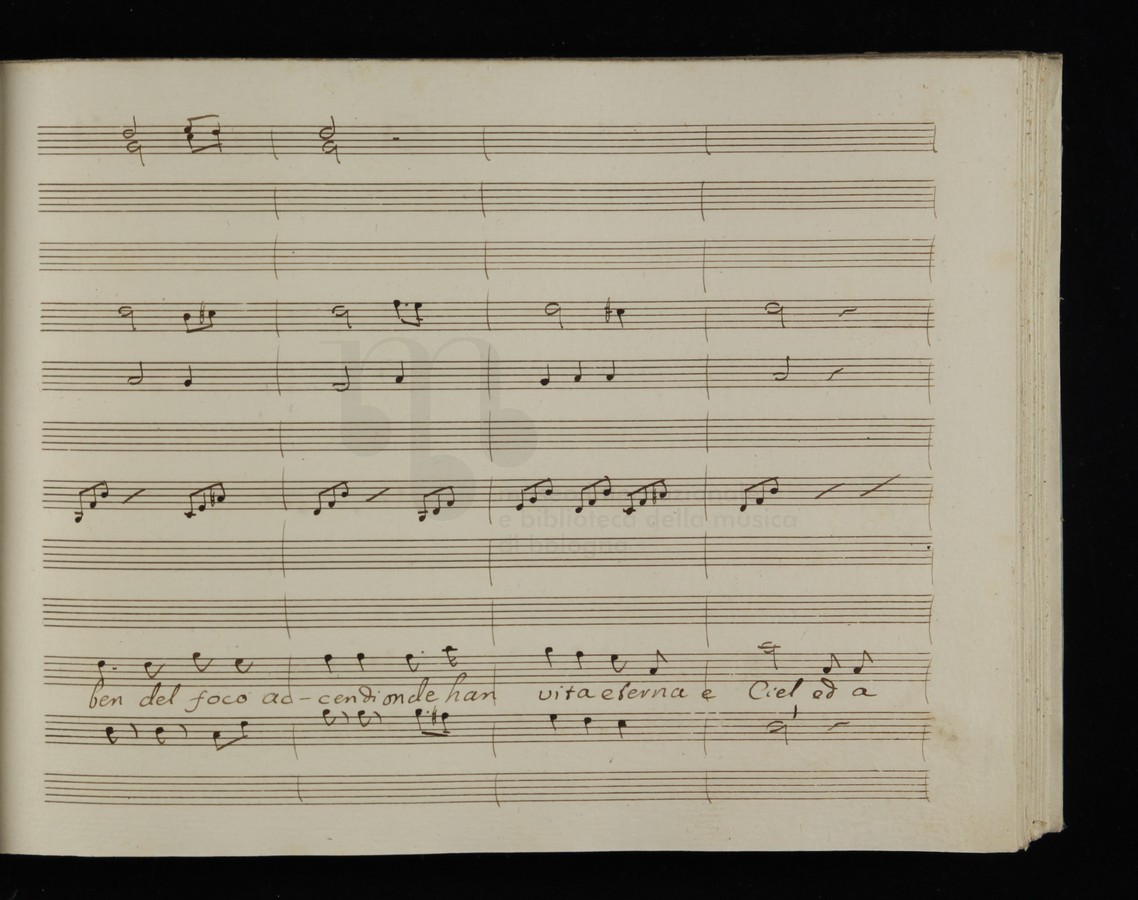 ben del foco ac-cendi onde han vita eterna e Ciel ed a
museo internazionale
e biblioteca della musica
di bologna